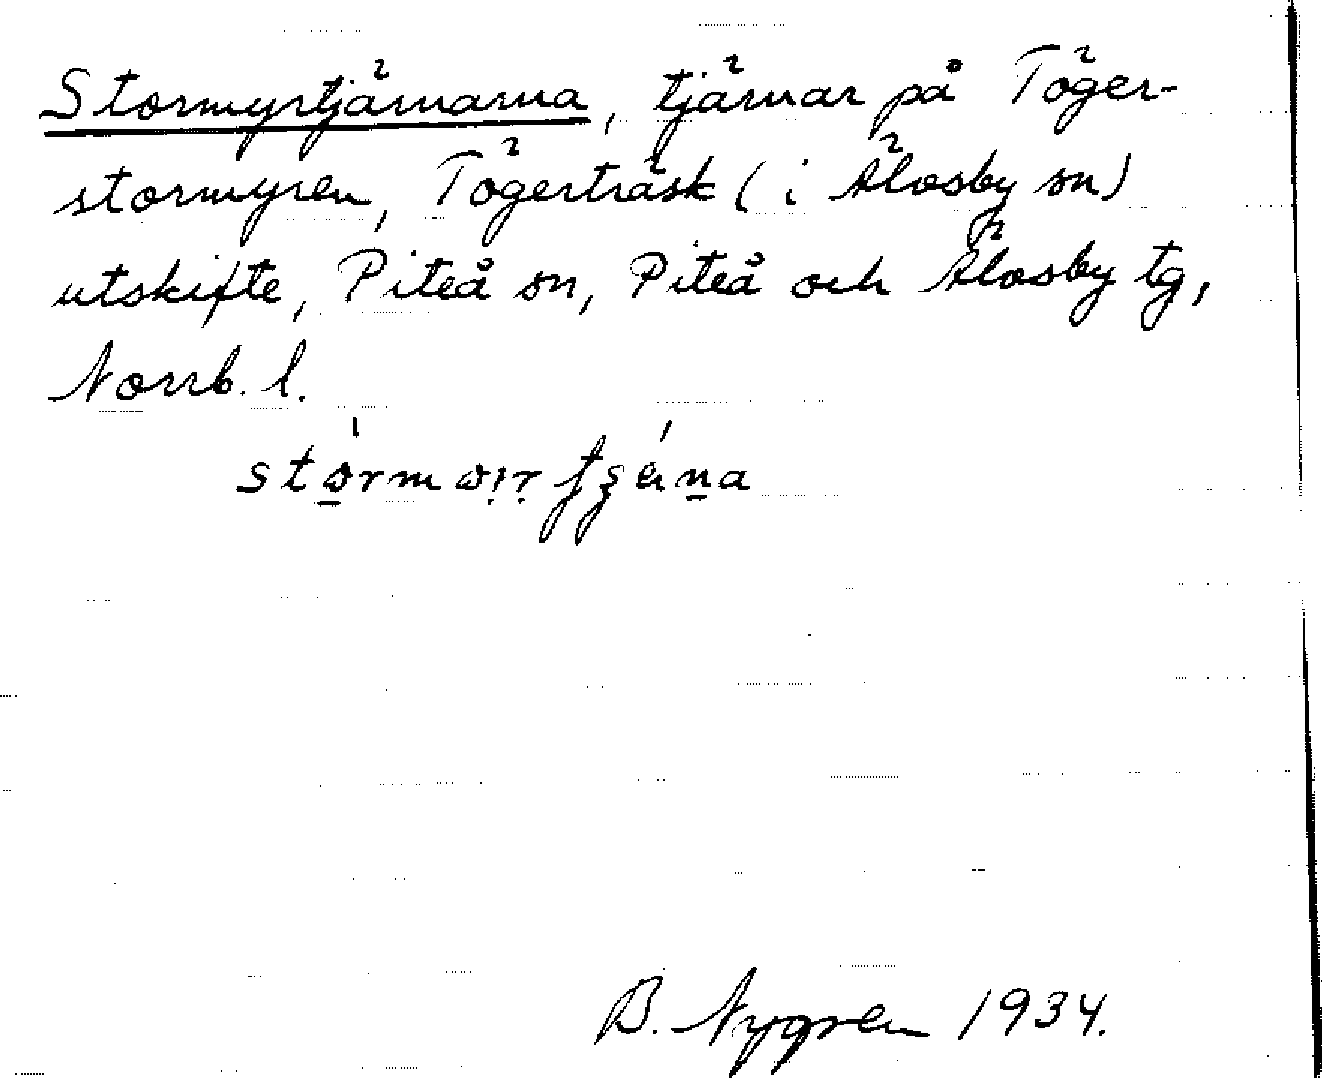 Stormyrtjärnarna, tjärnar på Töger-
stormyren, Tögerträsk (i Älvsby sn)
utskifte, Piteå sn, Piteå och Älvsby tg,
Norrb. l.
B. Nygren 1934.